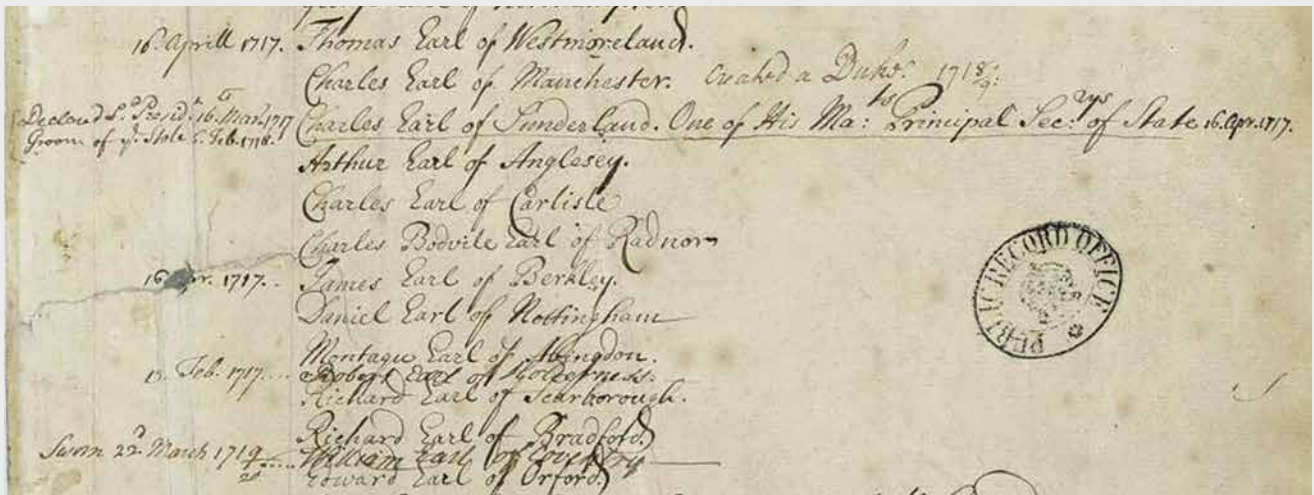 16. Aprill 1717. Thomas Earl of Westmoreland.
Charles Earl of Manchester. Created a Duke. 1718/9:
Declared Ld. Presidt. 16. Mar. 1717 Charles Earl of Sunderland. One of His Ma:ts Principal Sec:rys of State 16. Apr. 1717.
Groom of ye. Stole 5. Feb. 1718.
Arthur Earl of Anglesey.
Charles Earl of Carlisle
Charles Bodvile Earl of Radnor
16 1717. James Earl of Berkley.
Daniel Earl of Nottingham
Montagu Earl of Abingdon.
13. Feb. 1717.... Robert Earl of Holderness.
Richard Earl of Scarborough.
Richard Earl of Bradford
Sworn 22d. March 1719/20..... William Earl of Coventry
Edward Earl of Orford.
PUBLIC RECORD OFFICE